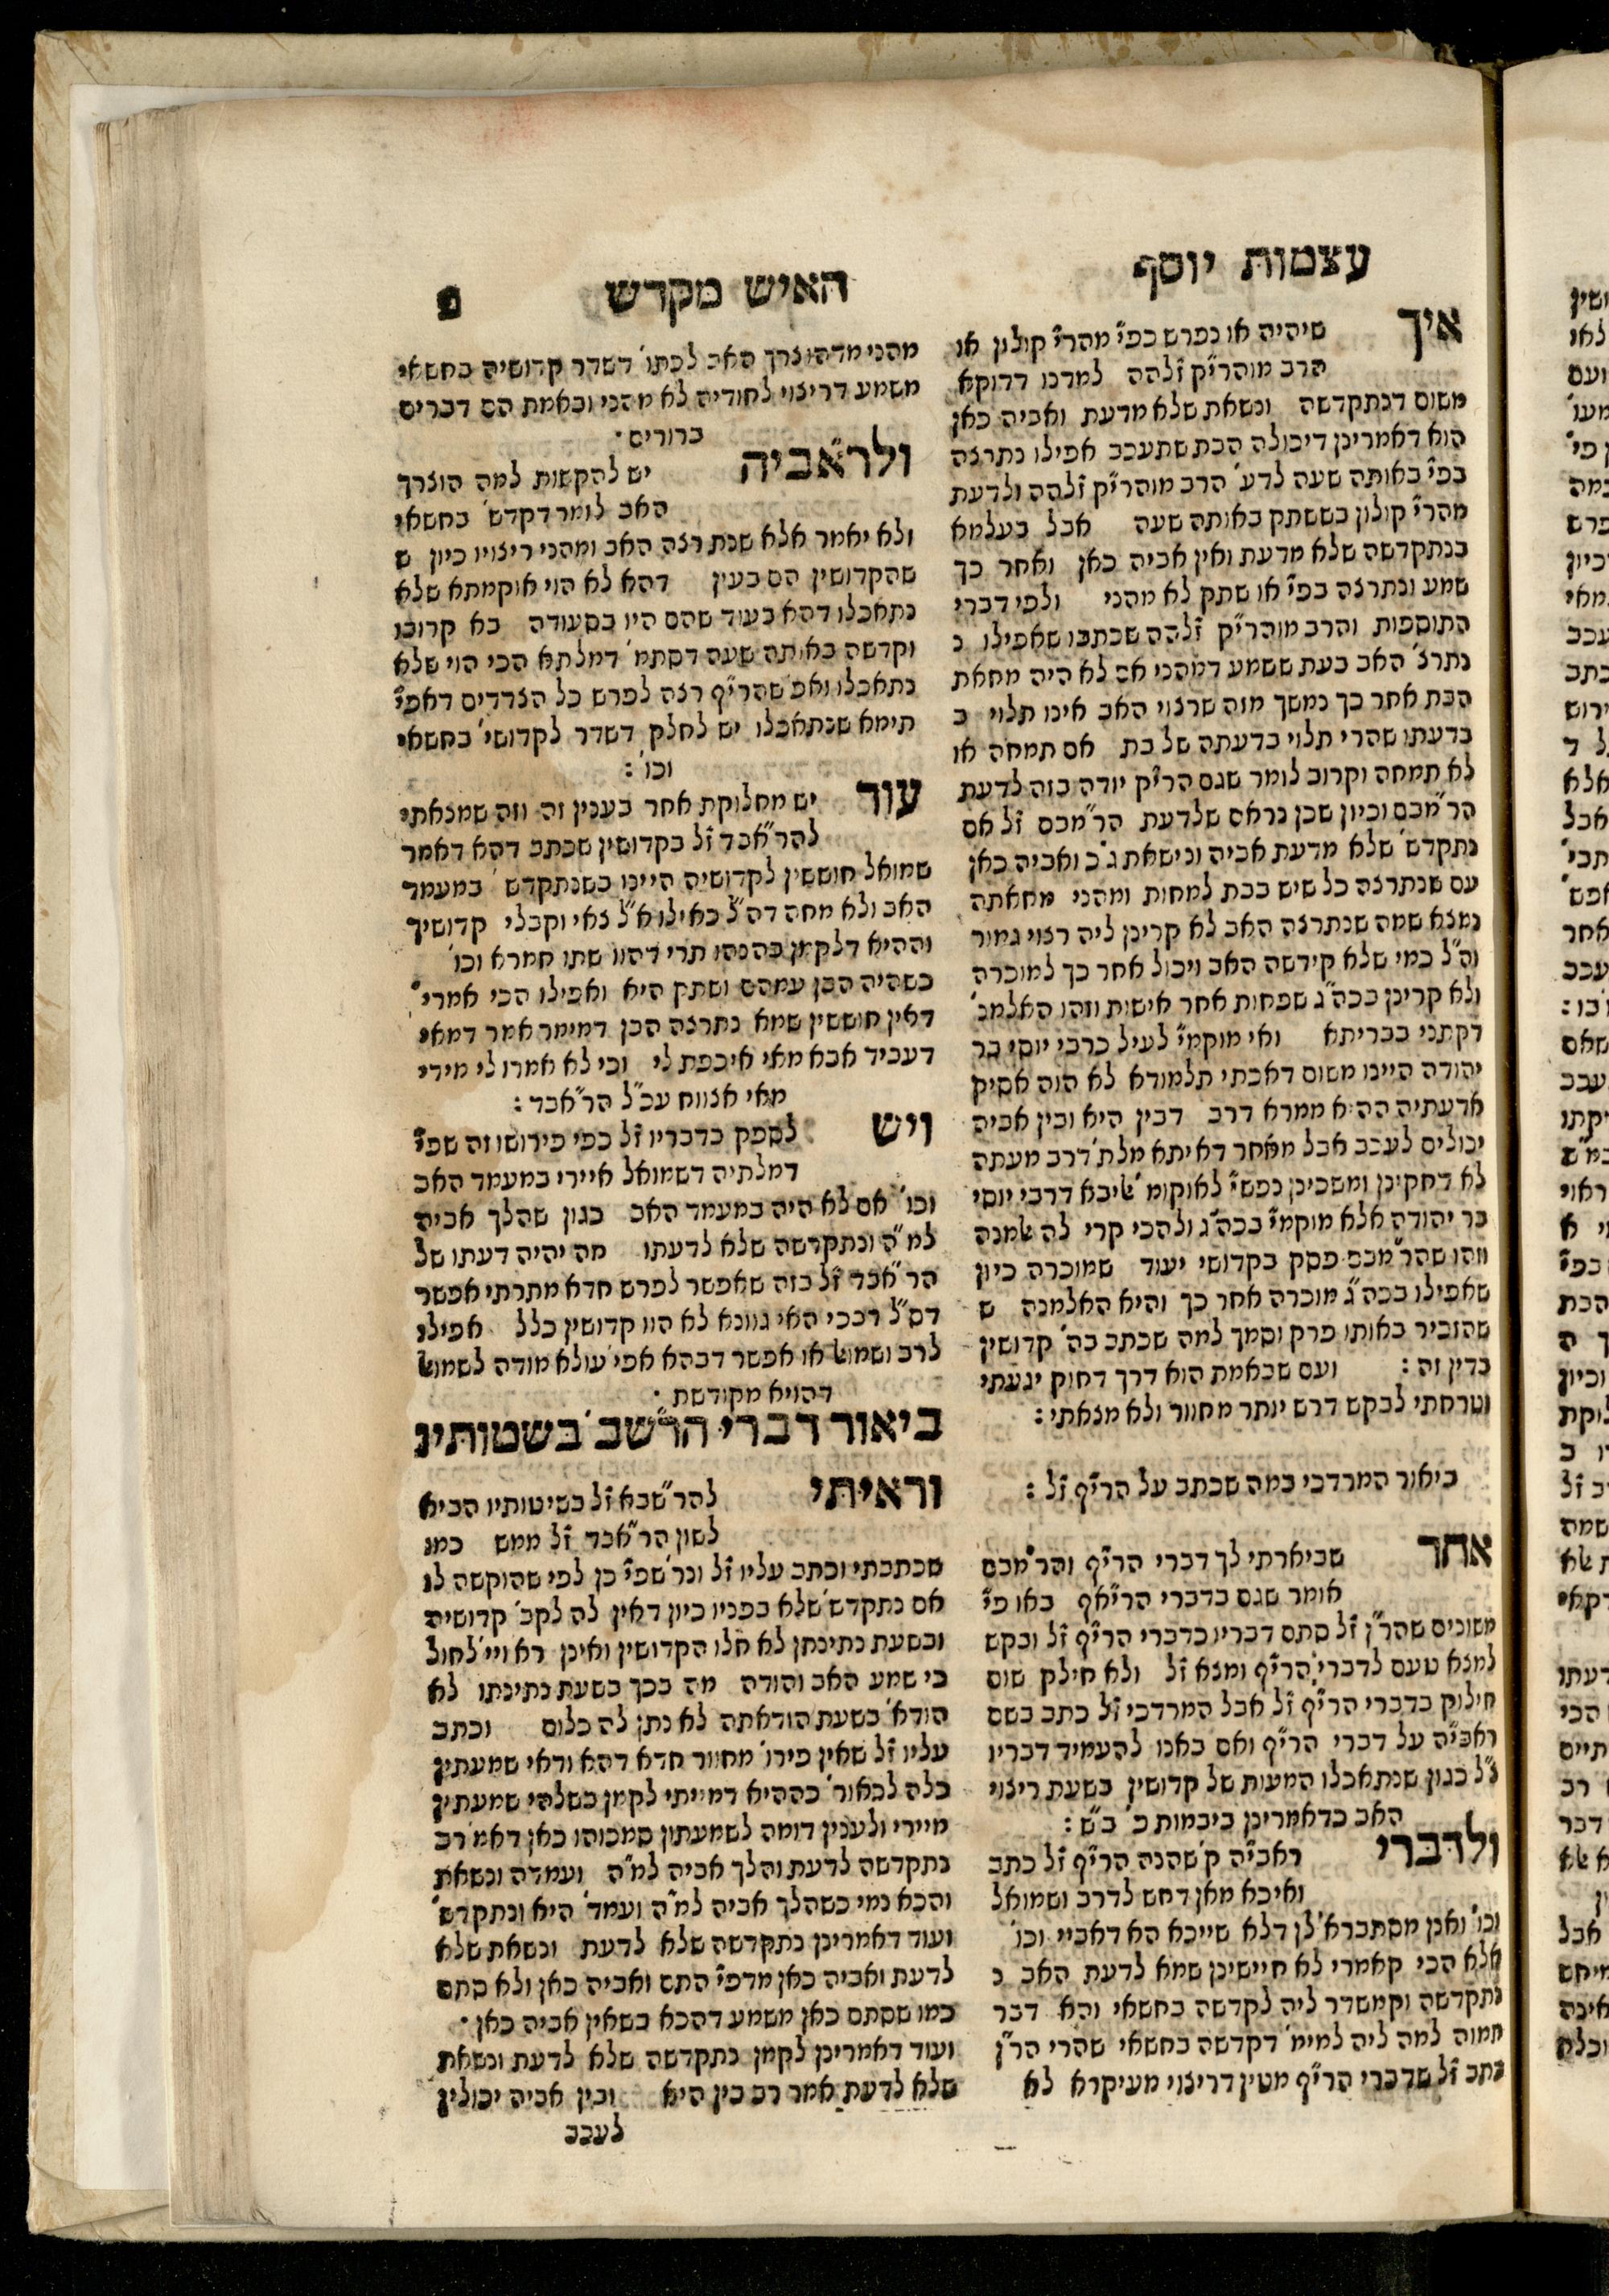 עצמות יוסף
האיש מקדש
פ
איך שיהיה או נפרש כפי׳ מהרי״ קולון או
הרב מוהרי״ק ז״לה״ה למדנו דדוקא
משום דנתקדשה ונשאת שלא מדעת ואביה כאן
הוא דאמרינן דיכולה הבת שתעכב אפילו נתרצה
בפי׳ באותה שעה לדע׳ הרב מוהרי״ק ז״לה״ה ולדעת
מהרי״ קולון כששתק באותה שעה אבל בעלמא
בנתקדשה שלא מדעת ואין אביה כאן ואחר כך
שמע ונתרצה בפי׳ או שתק לא מהני ולפי דברי
התוספות והרב מוהרי״ק ז״לה״ה שכתבו שאפילו נ
נתרצ׳ האב בעת ששמע דמהני אם לא היה מחאת
הבת אחר כך נמשך מזה שרצוי האב אינו תלוי ב
בדעתו שהרי תלוי בדעתה של בת אם תמחה או
לא תמחה וקרוב לומר שגם הרי״ק יודה בזה לדעת
הר״מבם וכיון שכן נראה שלדעת הר״מבם ז״ל אם
נתקדש׳ שלא מדעת אביה ונישאת ג״כ ואביה כאן
עם שנתרצה כל שיש בבת למחות ומהני מחאתה
נמצא שמה שנתרצה האב לא קרינן ליה רצוי גמור
וה״ל כמי שלא קידשה האב ויכול אחר כך למוכרה
ולא קרינן בכה״ג שפחות אחר אישות וזהו האלמנ׳
דקתני בברייתא ואי מוקמי׳ לעיל כרבי יוסי בר
יהודה היינו משום דאכתי תלמודא לא הוה אסיק
אדעתיה ההיא ממרא דרב דבין היא ובין אביה
יכולים לעכב אבל מאחר דאיתא מלת׳ דרב מעתה
לא דחקינן ומשכינן נפשי׳ לאוקומ׳ אליבא דרבי יוסי
בר יהודה אלא מוקמי׳ בכה״ג ולהכי קרי לה אלמנה
וזהו שהר״מבם פסק בקדושי יעוד שמוכרה כיון
שאפילו בכה״ג מוכרה אחר כך והיא האלמנה ש
שהזכיר באותו פרק וסמך למה שכתב בה׳ קדושין
בדין זה : ועם שבאמת הוא דרך דחוק יגעתי
וטרחתי לבקש דרש יותר מחוור ולא מצאתי :
ביאור המרדכי במה שכתב על הרי״ף ז״ל :
אחר שביארתי לך דברי הרי״ף והר״מבם
אומר שגם בדברי הריא״ף באו פי׳
משונים שהר״ן ז״ל סתם דבריו כדברי הרי״ף ז״ל ובקש
למצא טעם לדברי הרי״ף ומצא ז״ל ולא חילק שום
חילוק בדברי הרי״ף ז״ל אבל המרדכי ז״ל כתב בשם
ראבי״ה על דברי הרי״ף ואם באנו להעמיד דבריו
צ״ל כגון שנתאכלו המעות של קדושין בשעת ריצוי
האב כדאמרינן ביבמות כ׳ ב״ש :
ולדברי ראבי״ה ק׳ שהנה הרי״ף ז״ל כתב
ואיכא מאן דחש לדרב ושמואל
וכו׳ ואנן מסתברא לן דלא שייכא הא דאביי וכו׳
אלא הכי קאמרי לא חיישינן שמא לדעת האב נ
נתקדשה וקמשדר ליה לקדשה בחשאי והא דבר
תמוה למה ליה למימ׳ דקדשה בחשאי שהרי הר״ן
כתב ז״ל שדברי הרי״ף מטין דריצוי מעיקרא לא
מהני מדהוצרך האב לכתו׳ דשדר קדושיה בחשאי
משמע דריצוי לחודיה לא מהני ובאמת הם דברים
ברורים ·
ולר״אביה יש להקשות למה הוצרך
האב לומר דקדש׳ בחשאי
ולא יאמר אלא שנתרצה האב ומהני ריצויו כיון ש
שהקדושין הם בעין דהא לא הוי אוקמתא שלא
נתאכלו דהא בעוד שהם היו בסעודה בא קרובו
וקדשה באותה שעה דסתמ׳ דמלתא הכי הוי שלא
נתאכלו ואפ׳ שהרי״ף רצה לפרש כל הצדדים דאפי׳
תימא שנתאכלו יש לחלק דשדר לקדושי׳ בחשאי
וכו׳ :
עוד יש מחלוקת אחר בענין זה וזה שמצאתי
להר״אבד ז״ל בקדושין שכתב דהא דאמר
שמואל חוששין לקדושיה היינו בשנתקדש׳ במעמד
האב ולא מחה דה״ל כאילו א״ל צאי וקבלי קדושיך
וההיא דלקמן בהנהו תרי דהוו שתו חמרא וכו׳
כשהיה הבן עמהם ושתק היא ואפילו הכי אמרי׳
דאין חוששין שמא נתרצה הבן דמימר אמר דמאי
דעביד אבא מאי איכפת לי וכי לא אמרו לי מידי
מאי אצווח עכ״ל הר״אבד :
ויש לספק בדבריו ז״ל כפי פירושו זה שפי׳
דמלתיה דשמואל איירי במעמד האב
וכו׳ אם לא היה במעמד האב כגון שהלך אביה
למ״ה ונתקדשה שלא לדעתו מה יהיה דעתו של
הר״אבד ז״ל בזה שאפשר לפרש חדא מתרתי אפשר
דס״ל דבכי האי גוונא לא הוו קדושין כלל אפילו
לרב ושמואל או אפשר דבהא אפי׳ עולא מודה לשמואל
דהויא מקודשת ·
ביאור דברי הר״שב׳ בשטותיו
וראיתי להר״שבא ז״ל בשיטותיו הביא
לשון הר״אבד ז״ל ממש כמו
שכתבתי וכתב עליו ז״ל ונר׳ שפי׳ כן לפי שהוקשה לו
אם נתקדש׳ שלא בפניו כיון דאין לה לקב׳ קדושיה
ובשעת נתינתן לא חלו הקדושין ואינן ראויי׳ לחול
כי שמע האב והודה מה בכך בשעת נתינתו לא
הודא׳ בשעת הודאתה לא נתן לה כלום וכתב
עליו ז״ל שאין פירו׳ מחוור חדא דהא ודאי שמעתין
כלה לכאור׳ כההיא דמייתי לקמן בשלהי שמעתין
מיירי ולענין דומה לשמעתין סמכוהו כאן דאמ׳ רב
נתקדשה לדעת והלך אביה למ״ה ועמדה ונשאת
והכא נמי כשהלך אביה למ״ה ועמד׳ היא ונתקדש׳
ועוד דאמרינן נתקדשה שלא לדעת ונשאת שלא
לדעת ואביה כאן מדפי׳ התם ואביה כאן ולא סתם
כמו שסתם כאן משמע דהכא בשאין אביה כאן ·
ועוד דאמרינן לקמן נתקדשה שלא לדעת ונשאת
שלא לדעת אמר רב בין היא ובין אביה יכולין
לעכב